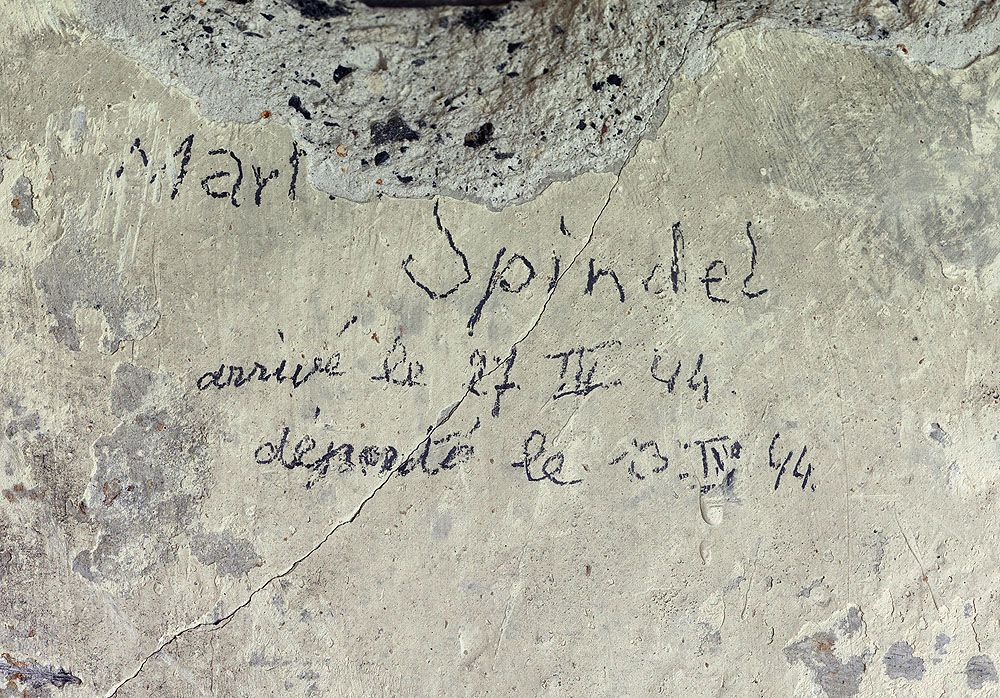 Mart
Spindel
arrivé le 27 III 44.
déporté le 13 IV 44.